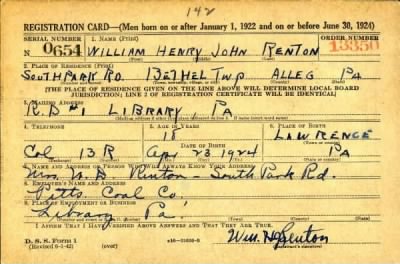 142
REGISTRATION CARD—(Men born on or after January 1, 1922 and on or before June 30, 1924)
SERIAL NUMBER 1. NAME (Print) ORDER NUMBER
N 0654 WILLIAM HENRY JOHN RENTON 13350
2. PLACE OF RESIDENCE (Print)
SOUTH PARK RD. BETHEL TWP ALLEG PA
(THE PLACE OF RESIDENCE GIVEN ON THE LINE ABOVE WILL DETERMINE LOCAL BOARD
JURISDICTION; LINE 2 OF REGISTRATION CERTIFICATE WILL BE IDENTICAL)
3. MAILING ADDRESS
R.D #1 LIBRARY PA
4. TELEPHONE 5. AGE IN YEARS 6. PLACE OF BIRTH
18 LAWRENCE
DATE OF BIRTH
Col 13R Apr 23 1924 PA
7. NAME AND ADDRESS OF PERSON WHO WILL ALWAYS KNOW YOUR ADDRESS
Mrs. Renton - South Park Rd.
8. EMPLOYER'S NAME AND ADDRESS
Pitts. Coal Co.
9. PLACE OF EMPLOYMENT OR BUSINESS
Library Pa.
I AFFIRM THAT I HAVE VERIFIED ABOVE ANSWERS AND THAT THEY ARE TRUE.
D. S. S. Form 1
(Revised 6-1-42) (over) Wm. H Renton